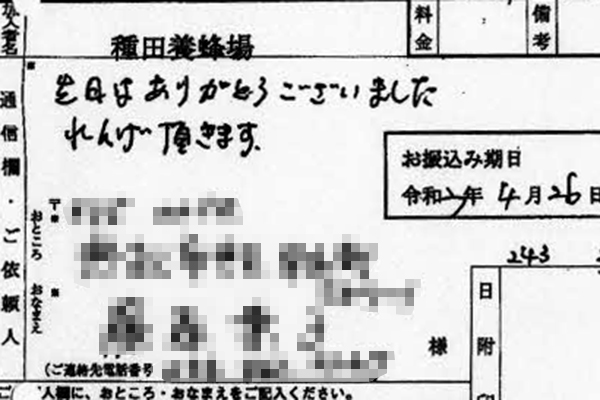 加入者名
種田養蜂場
料金
備考
通信欄・ご依頼人
先日はありがとうございました
れんげ頂きます。
お振込み期日
令和2年 4月26日
243
〒
おところ
おなまえ
様
(ご連絡先電話番号
日附印
人欄に、おところ・おなまえをご記入ください。